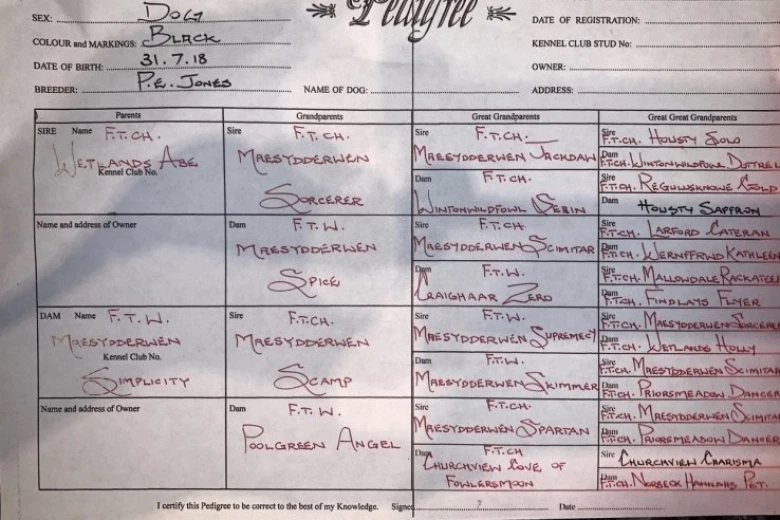 SEX: DOG
Pedigree
DATE OF REGISTRATION:
COLOUR and MARKINGS: BLACK
KENNEL CLUB STUD No:
DATE OF BIRTH: 31.7.18
OWNER:
BREEDER: P.E. JONES
NAME OF DOG:
ADDRESS:
Parents
Grandparents
Great Grandparents
Great Great Grandparents
SIRE Name F.T.CH.
WETLANDS ABE
Kennel Club No.
Name and address of Owner
DAM Name F.T.W.
MAESYDDERWEN
Kennel Club No.
SIMPLICITY
Name and address of Owner
Sire F.T.CH.
MAESYDDERWEN
SORCERER
Dam F.T.W.
MAESYDDERWEN
SPICE
Sire F.T.CH.
MAESYDDERWEN
SCAMP
Dam F.T.W.
POOLGREEN ANGEL
Sire F.T.CH.
MAESYDDERWEN JACKDAW
Dam F.T.CH.
WINTONWILDFOWL SERIN
Sire F.T.CH.
MAESYDDERWEN SCIMITAR
Dam F.T.W.
CRAIGHAAR ZERO
Sire F.T.W.
MAESYDDERWEN SUPREMECY
Dam F.T.W.
MAESYDDERWEN SKIMMER
Sire F.T.CH.
MAESYDDERWEN SPARTAN
Dam F.T.CH
CHURCHVIEW COVE OF
FOWLERSMOON
Sire
F.T.CH. HOUSTY SOLO
Dam
F.T.CH. WINTONWILDFOWL DOTTREL
Sire
F.T.CH. REGULUSKNOWE GOLD
Dam HOUSTY SAFFRON
Sire
F.T.CH. LARFORD CATERAN
Dam
F.T.CH. WERNFFRWD KATHLEEN
Sire
F.T.CH. MALLOWDALE RACKATEE
Dam
F.T.CH. FINDLAYS FLYER
Sire
F.T.CH. MAESYDDERWEN SORCERE
Dam
F.T.CH. WETLANDS HOLLY
Sire
F.T.CH. MAESYDDERWEN SCIMITAR
Dam
F.T.CH. PRIORSMEADOW DANCER
Sire
F.T.CH. MAESYDDERWEN SCIMITA
Dam
F.T.CH. PRIORSMEADOW DANCER
Sire CHURCHVIEW CHARISMA
Dam
F.T.CH. NORBECK HANNAHS PET.
I certify this Pedigree to be correct to the best of my Knowledge. Signed ? Date